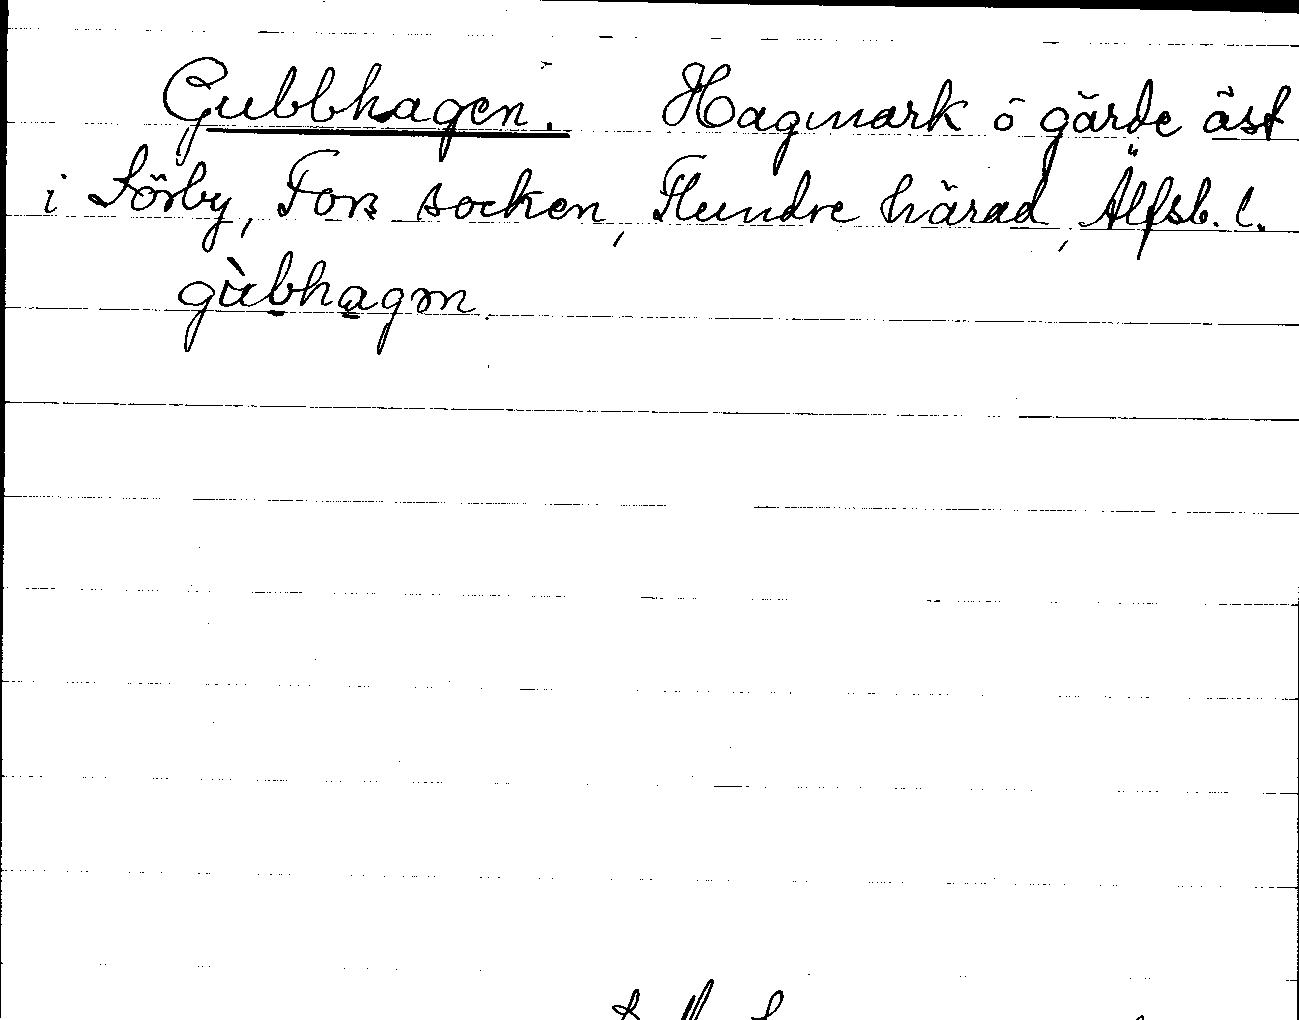 Gubbhagen. Hagmark o gärde öst
i Sörby, Fors socken, Flundre härad, Älfsb. l.
gùbhagən.